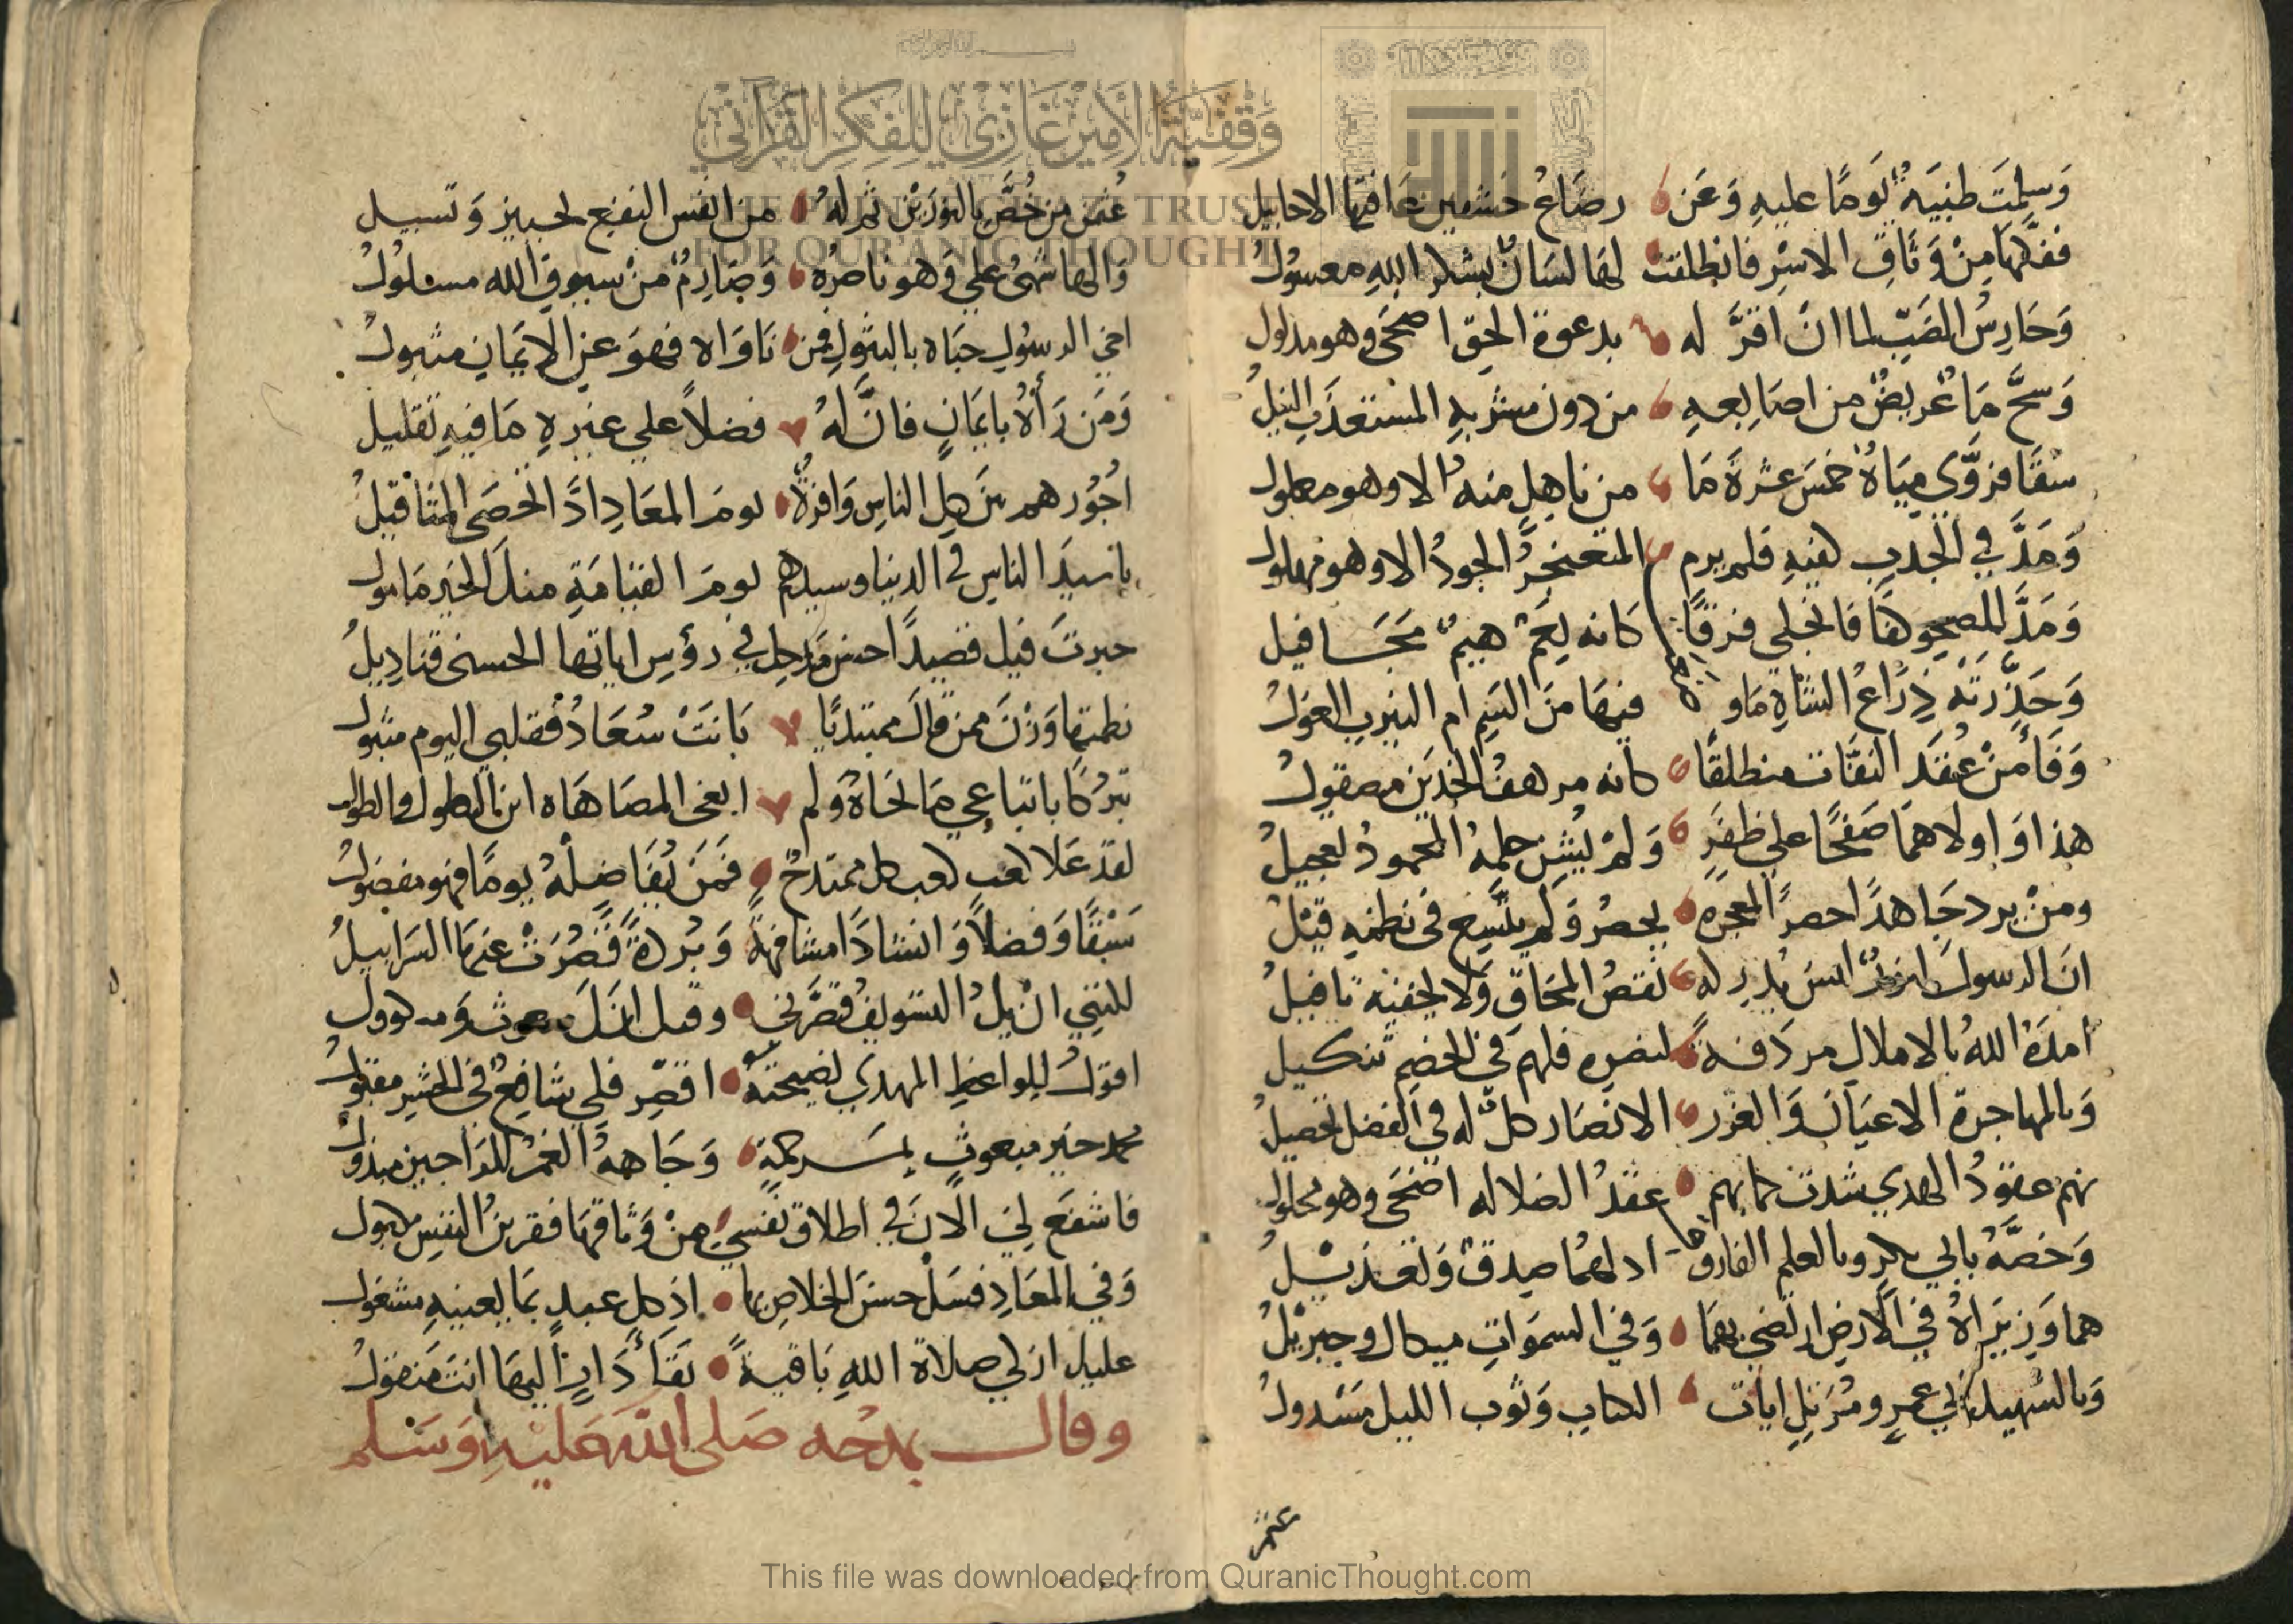 وَسلمَت ظبيَة يَومًا عليهِ وَعَن رضَاعُ خشفين عَاقها الاحابيل
ففكّها مِنْ وَثَاقِ الاسْرِ فانطلقت لها لسَانٌ بشكر اللهِ معسولُ
وَحَارِسُ الضَبّ لما انْ اقرَّ له بدعوة الحقّ اضحَى وهو مدلول
وَسحَّ مَا من اصَابعهِ من دون مشربهِ المستعذَب النيلُ
سقًا فروَّي ميَاهُ خمسَ عشرةَ مَا من ناهلٍ منهُ الا وهو معلولُ
وَمَدَّ في الجَدبِ كفيهِ فلم يرم المثعنجرُ الجودُ الا وهو مهلولُ
وَمَدَّ للصَحو كفًا فانجلي فرقًا كانه نَعَمٌ هيمٌ مجَافيل
وَحَذّرَتْه ذِرَاعُ الشاةِ مَاو فيهَا مَنَ السَم ام النيرب الغولُ
وَفَا مِنْ عُقَد النفّاث منطلقًا كانه مرهفُ الخدَين مصقولُ
هذا وَاولاهمَا صَفحًا علي ظفَرٍ وَلم يُشِن حلمه المحمودُ تعجيلُ
ومنْ يرد جَاهدًا احصر المعجزه يحصرُ وَلم يتّسِع في نطمهِ قيْلُ
انَ الرسولَ لبدرٌ ليسَ يُدركه نَقصُ المحَاق وَلا يخفيْه تافيلُ
امدَهُ اللهُ بالاملاكِ مردَفةً لنصره فلهم في الخصم تنكيل
وَبالمهاجرة الاعيَان وَالغرر الانصَار كلٌ له في الفضل تحصيلُ
بهم عقودُ الهدي شدت كما بهم عقدُ الضلاله اضحَى وهو محلولُ
وَخصَّهُ بابي بكرٍ وبالعلم الفاروق اذ لهمُا صدقٌ وَتعديْلُ
هما وَزيرَاهُ في الارض ارتضي بهمَا وَفي السموَاتِ ميكال وجبريْلُ
وَبالشهيد ابي عمرٍو ومُرَتِلِ ايات الكتابِ وَثوب الليل مَسْدولُ
عثمن
عُثمن من خُصَّ بالنورَيْن ثم لهُ من انفس البضع تجهيز وَتسبيل
وَالهاشميُ علي وَهو ناصرُه وَصَارِمٌ منْ سيوفِ الله مسلولُ
اخي الرسوُلِ حبَاه بالبتولِ فمن نَاوَاه فهوَ عن الايمانِ متبولُ
وَمَن رَآهُ بايمَانٍ فانَّ لهُ فضلاً علي غيرهِ مَا فيهِ تقليل
اجُورهم بَين كلِ الناسِ وَافرةٌ يومَ المعَادِ اذَا اخصَى المثاقيلُ
يا سيدَ الناسِ في الدنيا وسيدهم يومَ القيَامَةِ منكَ الخير مَامول
حبرتَ فيك قصيدًا احسن مَدحك في رؤسِ ابياتها الحسنى قناديلُ
نطمتها وَزْنَ ممن قالَ مبتديًا بَانتْ سُعَادُ فقلبي اليوم متبول
تبرُكًا باتباعي مَا نحَاهُ وَلم ابغى المضَاهَاه اين الطول والطول
لقد عَلا كعب كعب كل ممتدحٍ فمَن يُفَاضِلْهُ يومًا فهو مفضولُ
سَبْقًا وَفضلاً وَانشادًا مشافهةً وَبُردةً قَصُرَتْ عنها السَرَابيلُ
للنبي انْ يكُ التسويفُ قصَّرني وقيل انكَ مبعوث وَمسوول
اقولُ للواعظِ المهدي نصيحتهُ اقصِر فلي شافعٌ في الحشرِ مقبولُ
محمد خير مبعوثٍ بمَرحَمةٍ وَجَاههُ الغمْرُ للرَاجين مبذولُ
فاشفَع لِي الآنَ في اطلاق نفسي منْ وَثاقها فقرينُ النفسِ مكبول
وَفي المعَادِ فسَلْ حسنَ الخلاصِ بها اذ كلِ عبدٍ بمَا يعنيهِ مشغول
عليك ازكي صلاة اللهِ بَاقيةً بقَاْ دَارٍ اليهَا انتَ منقولُ
وقال يمدحُه صَلى اللهَ عَليْهِ وَسَلم
وَقفِيَّة الأمِير غَازِي لِلفِكر القُرْآني
THE PRINCE GHAZI TRUST
FOR QUR'ANIC THOUGHT
This file was downloaded from QuranicThought.com